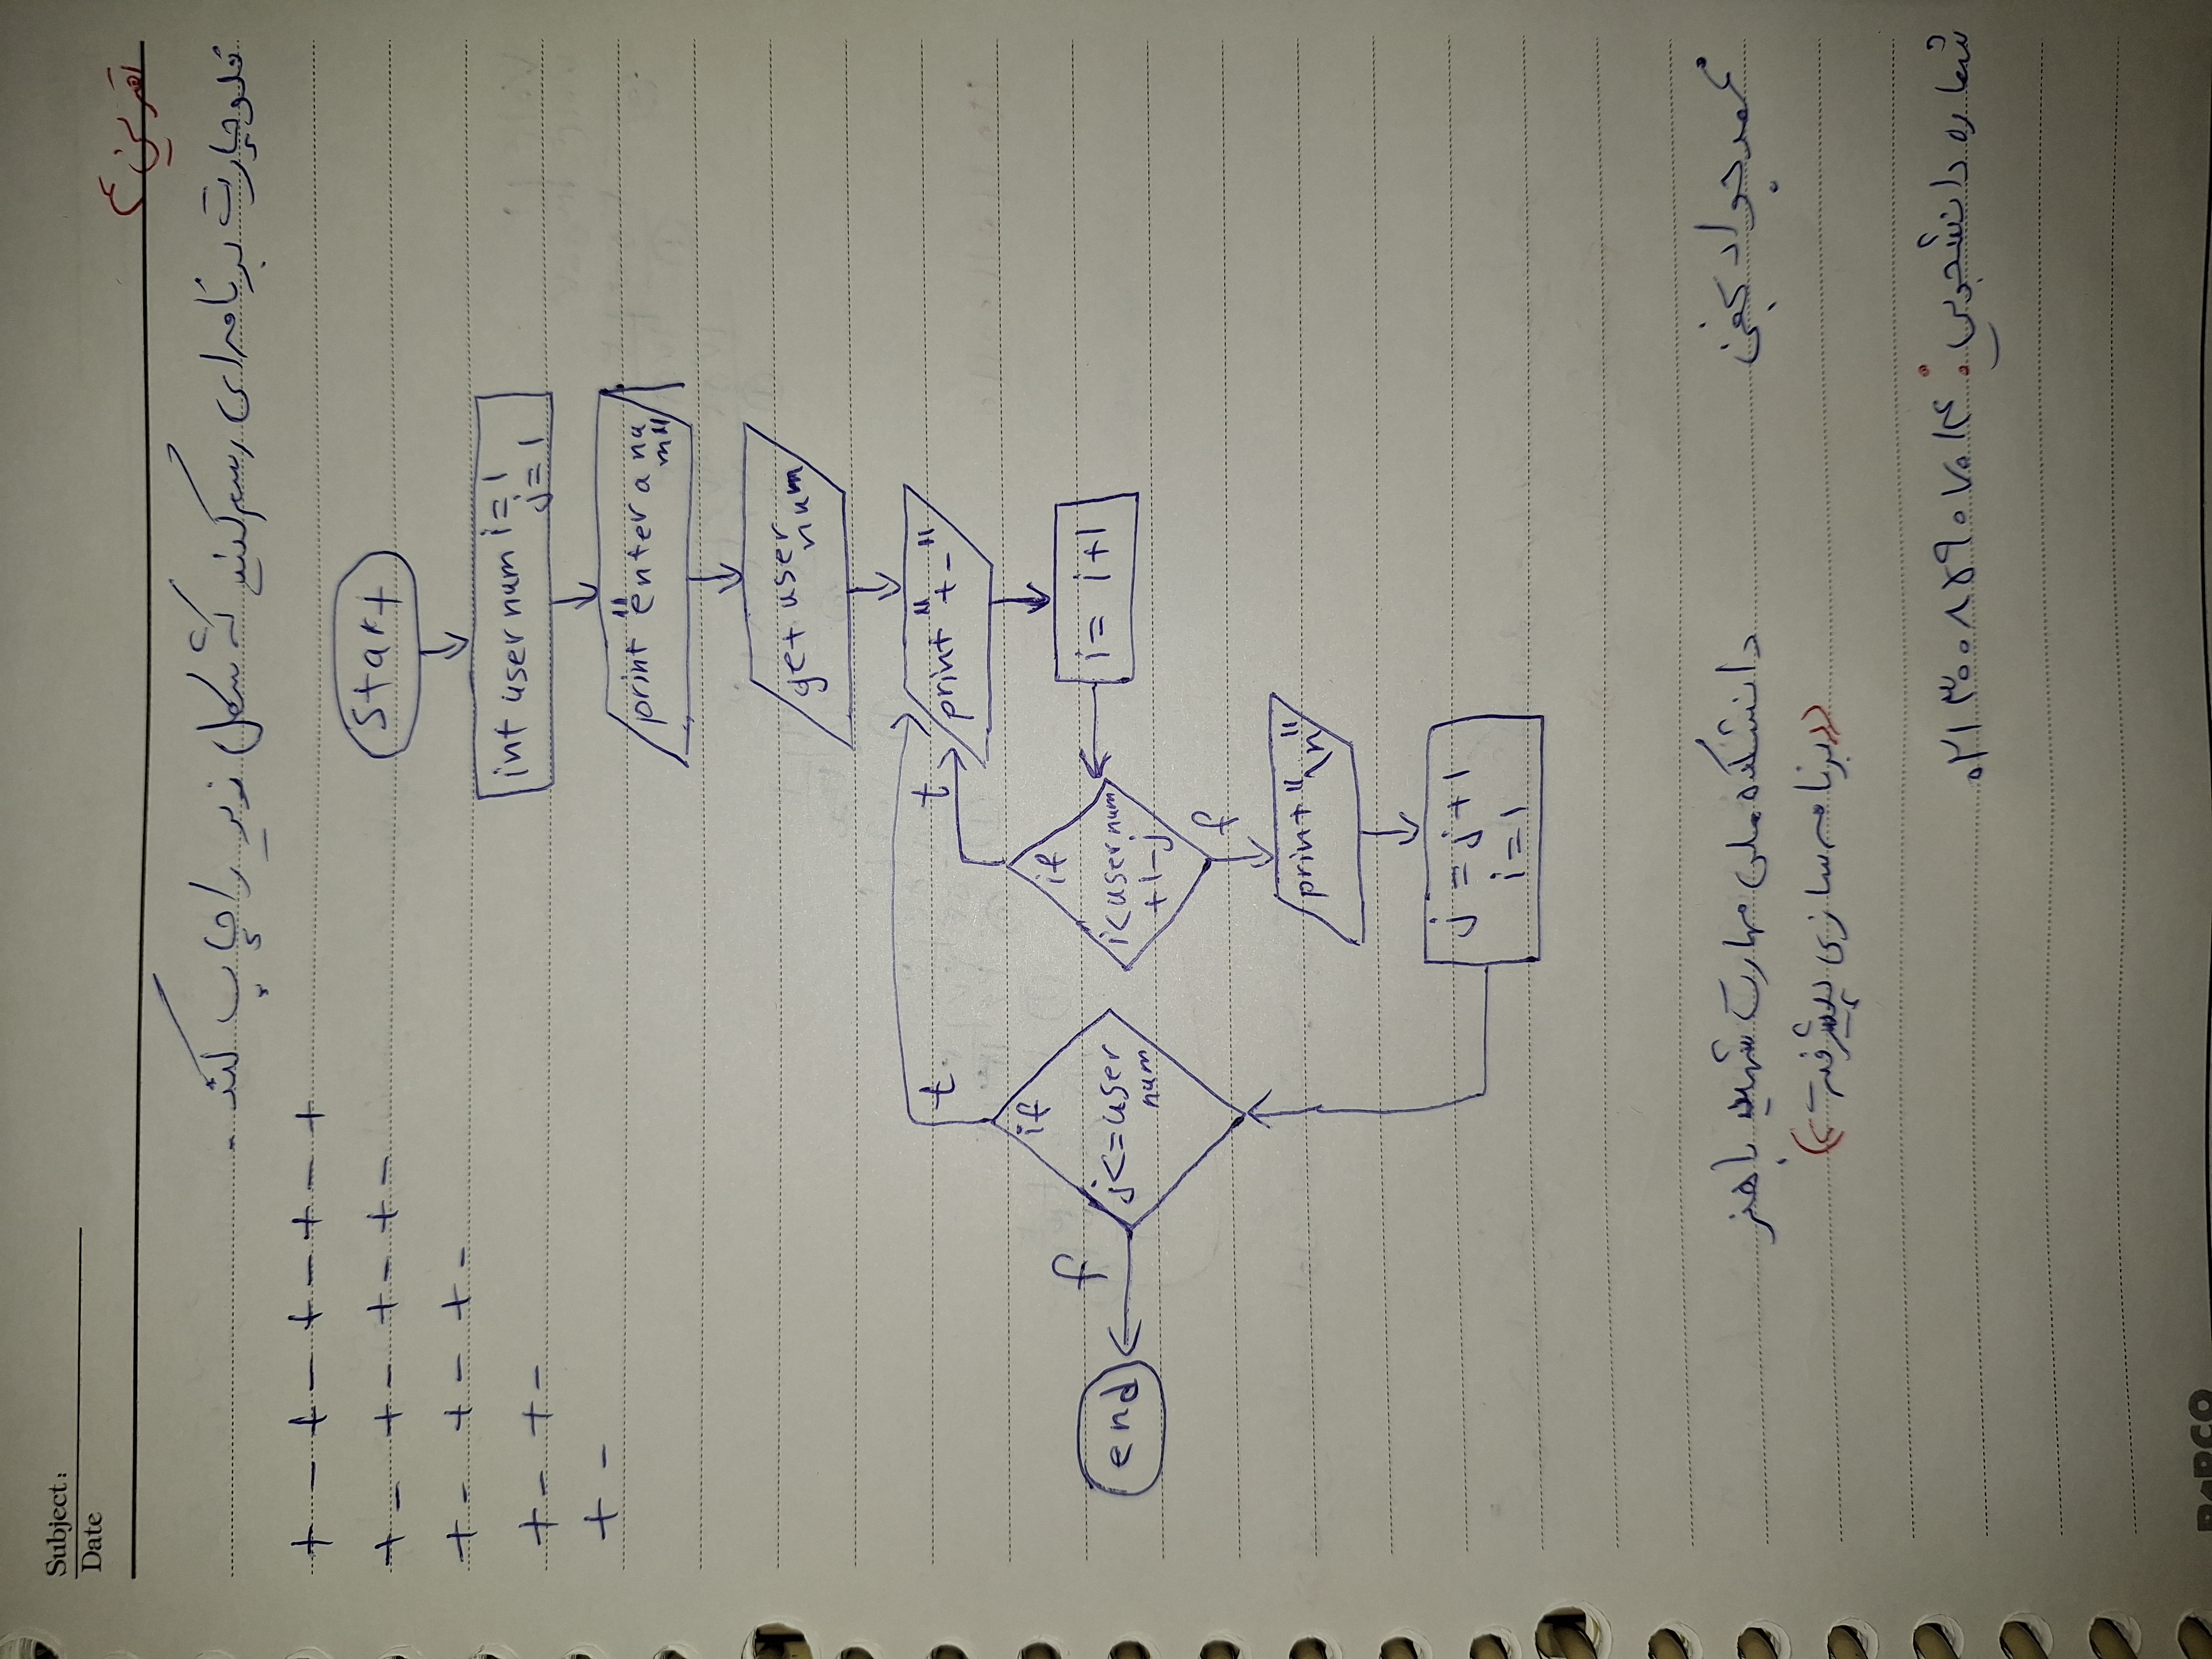 Subject:
Date
تمرین ۲
فلوچارت برنامه‌ای رسم کنید که شکل زیر را چاپ کند.
+ - + - + - + - +
+ - + - + - + -
+ - + - + -
+ - + -
+ -
start
int user num i = 1
j = 1
print "enter a nu
m"
get user
num
print "+-"
i = i+1
if
i<user num
+1-j
t
f
print "\n"
j = j+1
i = 1
if
j<=user
num
t
f
end
محمدجواد نجفی
دانشکده ملی مهارت شهید باهنر
((برنامه سازی پیشرفته ۲))
شماره دانشجویی: